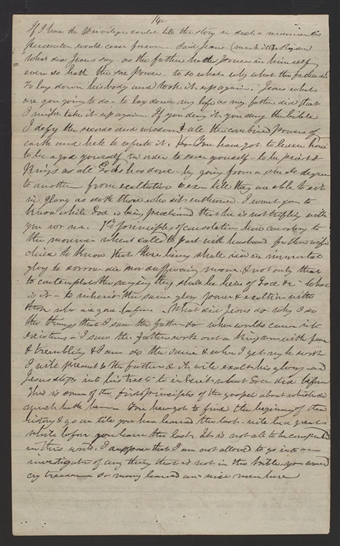 14
If I had the privilege could tell the story in such a manner his
persecutor would cease forever. Said Jesus (mark it Br Rigdon)
What did Jesus say as the father hath power in himself
even so hath the son power. to do what why what the father did
To lay down his body and took it up again. Jesus what
are you going to do. to lay down my life as my father did that
I might take it up again. If you deny it you deny the bible
I defy the and wisdom & all the combined powers of
earth and hell to refute it. You have got to learn how
to be a god yourself in order to save yourself to be priests &
Kings as all Gods has done by going from a small degree
to another from exaltation to ex till they are able to sit
in glory as doth those who sit enthroned. I want you to
know while God is being proclaimed that he is not trifling with
you nor me. 1st principles of consolation how consoling to
the mourner when called to part with husband father wife
child to know that those being shall rise in immortal
glory to sorrow die nor suffer any more. & not only that
to contemplate the saying they shall be heirs of God &c. what
is it. to inherit the same glory power & exaltation with
those who are gone before. What did Jesus do why I do
the things that I saw the father do when worlds came into
existence I saw the father work out a kingdom with fear
& trembling & I am do the same & when I get my k work
I will present to the father & it will exalt his glory and
Jesus steps into his tracks to inherit what God did before
This is some of the first principles of the gospel about which so
much hath been You have got to find the beginning of the
history & go on till you have learned the last. will be a great
while before you learn the last. It is not all to be comprehended
in this world. I suppose that I am not allowed to go into an
investigation of any thing that is not in the bible you would
cry treason So many learned and wise men here